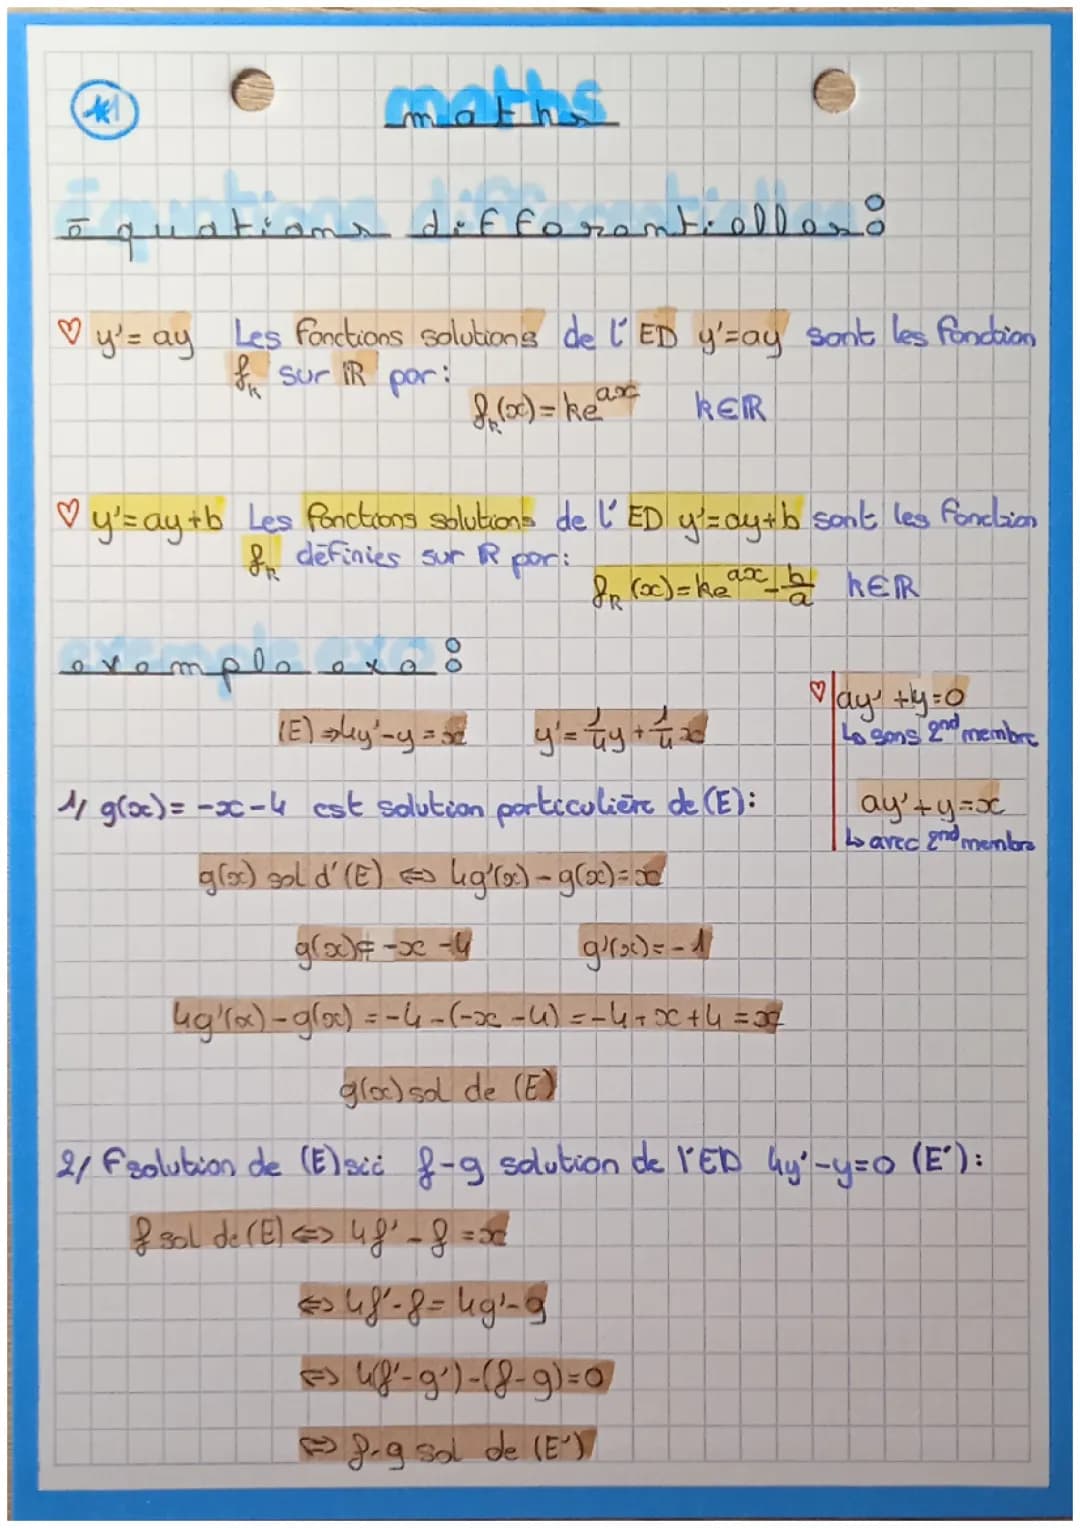 *1
maths
Équations différentielles:
♡ y'=ay Les fonctions solutions de l'ED y'=ay sont les fonction
fₖ sur ℝ par:
fₖ(x)=keᵃˣ k∈ℝ
♡ y'=ay+b Les fonctions solutions de l'ED y'=ay+b sont les fonction
fₖ définies sur R par:
fₖ(x)=keᵃˣ-b/a k∈ℝ
exemple exo:
(E)⇒4y'-y=x y'=1/4y+1/4x
♡ ay'+y=0
↳ sans 2nd membre
ay'+y=x
↳ avec 2nd membre
1/ g(x)=-x-4 est solution particulière de (E):
g(x) sol d'(E) ⇔ 4g'(x)-g(x)=x
g(x)=-x-4 g'(x)=-1
4g'(x)-g(x)=-4-(-x-4)=-4+x+4=x
g(x) sol de (E)
2/ F solution de (E) sii f-g solution de l'ED 4y'-y=0 (E'):
f sol de (E) ⇔ 4f'-f=x
⇔ 4f'-f=4g'-g
⇔ 4(f'-g')-(f-g)=0
⇔ f-g sol de (E')